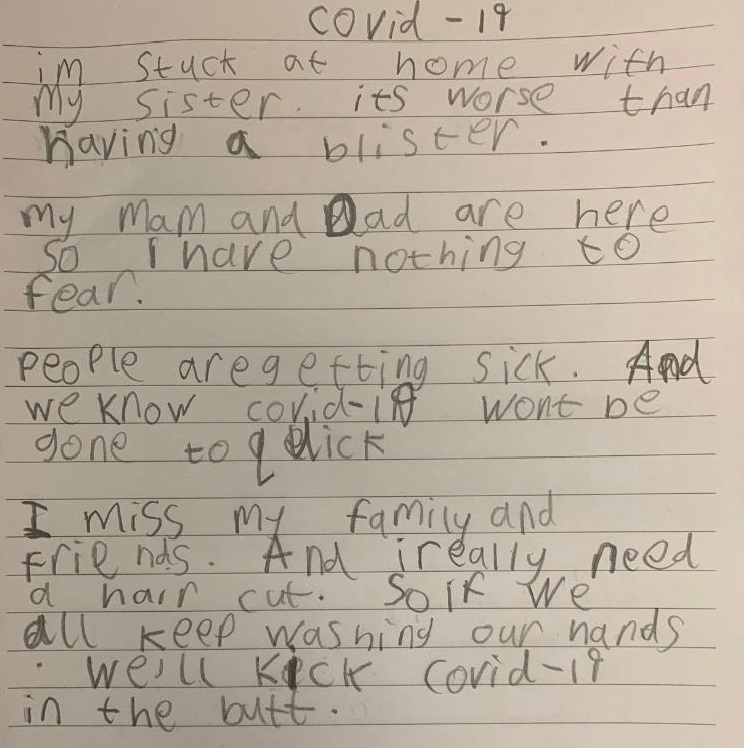 covid-19
im stuck at home with
my sister. its worse than
having a blister.
my mam and Dad are here
so i have nothing to
fear.
people are getting sick. And
we know covid-19 wont be
gone to quick
I miss my family and
friends. And i really need
a hair cut. So if we
all keep washing our hands
. we'll kick covid-19
in the butt.